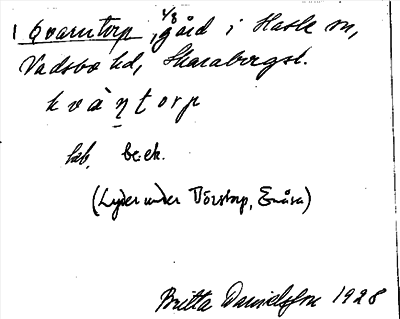 1 Qvarntorp, 1/8 gård i Hassle sn,
Vadsbo hd, Skarabergsl.
kvàṇtorp
hb. be.ek.
(Lyder under Törstorp, Enåsa)
Britta Danielsson 1928